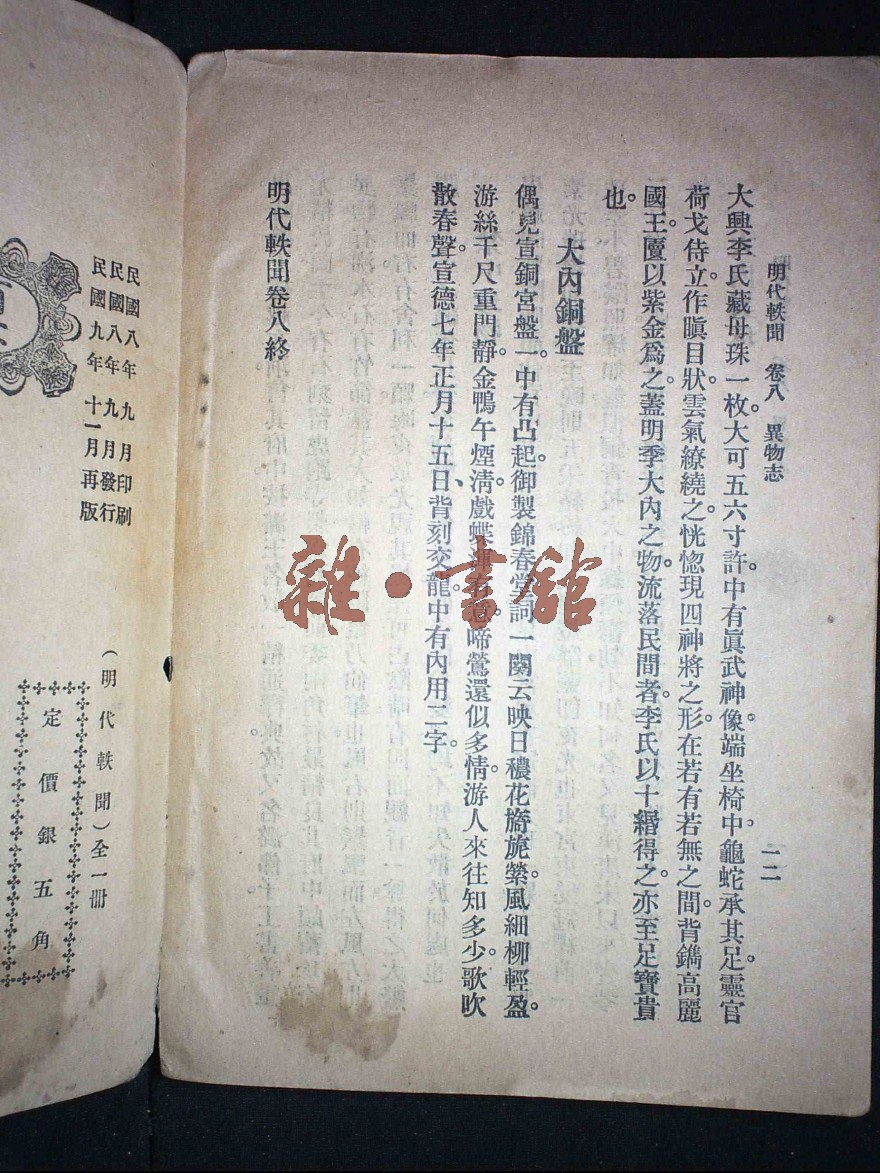 明代軼聞 卷八 異物志 一二
大興李氏藏母珠一枚。大可五六寸許。中有眞武神像端坐椅中。龜蛇承其足。靈官
荷戈侍立。作瞋目狀。雲氣繚繞之。恍惚現四神將之形。在若有若無之間。背鐫高麗
國王。匱以紫金爲之。蓋明季大內之物。流落民間者。李氏以十緡得之。亦至足寶貴
也。
大內銅盤
偶見宣銅宮盤一。中有凸起。御製錦春堂詞一闋云。映日穠花旖旎。縈風細柳輕盈。
游絲千尺重門靜。金鴨午煙淸。戲蝶渾有意。啼鶯還似多情。游人來往知多少。歌吹
散春聲。宣德七年正月十五日、背刻交龍。中有內用二字。
明代軼聞卷八終
民國八年九月印刷
民國八年九月發行
民國九年十一月再版
(明代軼聞)全一冊
定價銀五角
雜·書館